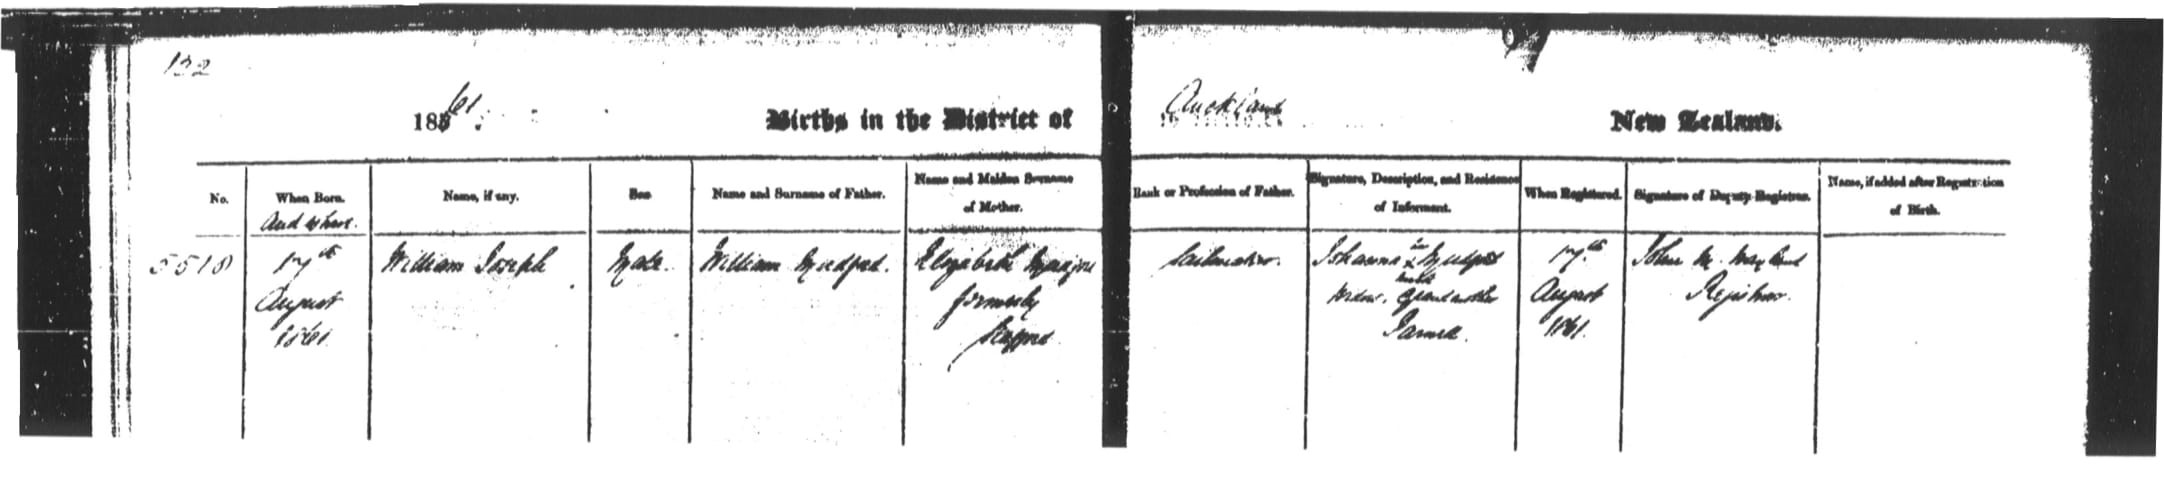 132
1861.
Births in the District of
Auckland
New Zealand.
No.
When Born.
And where.
Name, if any.
Sex
Name and Surname of Father.
Name and Maiden Surname
of Mother.
Rank or Profession of Father.
Signature, Description, and Residence
of Informant.
When Registered.
Signature of Deputy-Registrar.
Name, if added after Registration
of Birth.
5518
17th
August
1861
William Joseph
Male.
William Mudford.
Elizabeth
formerly
Sailmaker.
Johanna Mudford
Widow. Grandmother
Parnell.
17th
August
1861.
John
Registrar.